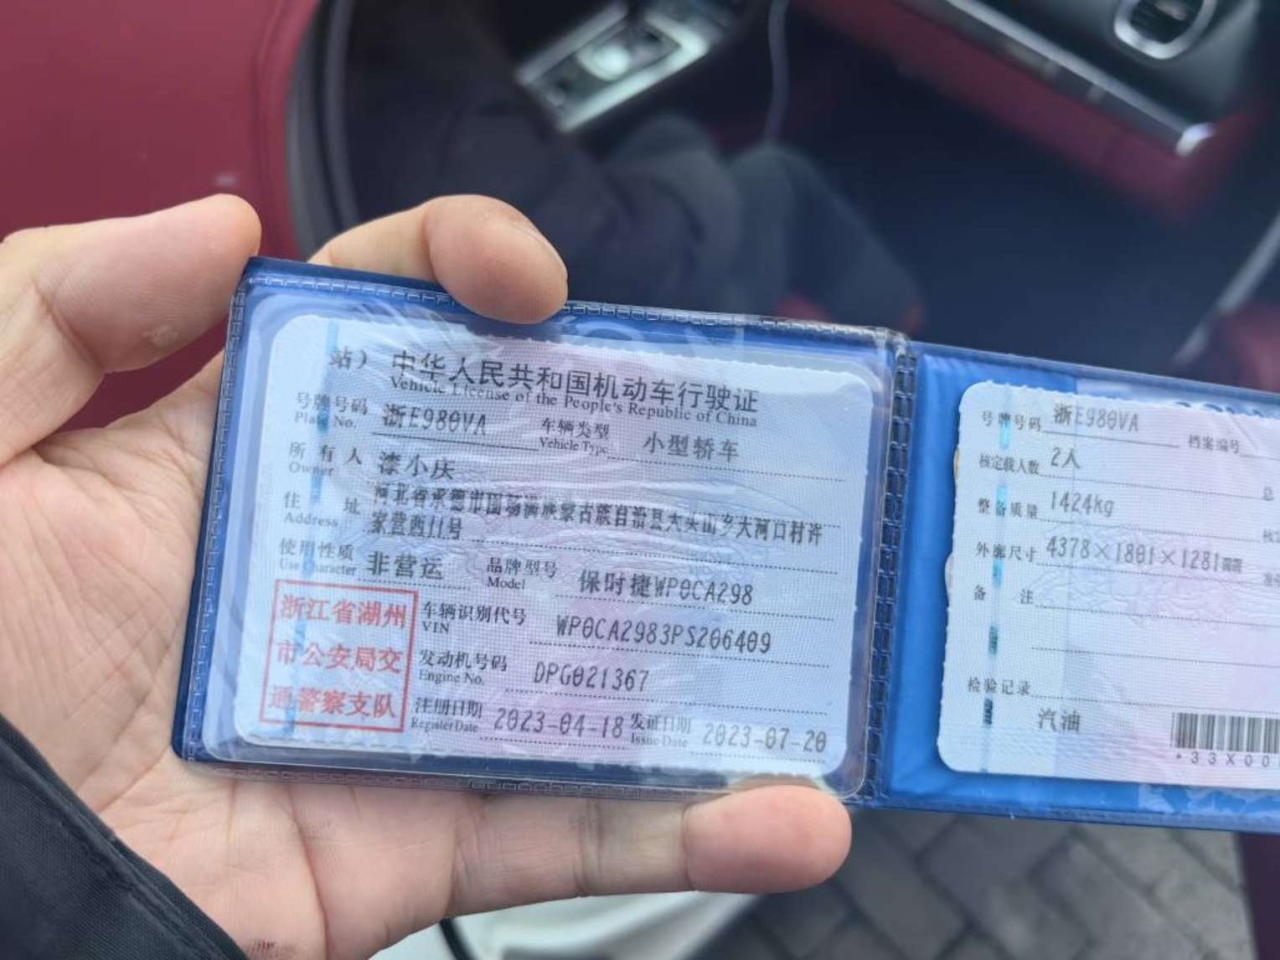 站）
中华人民共和国机动车行驶证
Vehicle License of the People's Republic of China
号牌号码 浙E980VA 车辆类型 小型轿车
Plate No. Vehicle Type
所有人 漆小庆
Owner
住址 河北省承德市围场满族蒙古族自治县大头山乡大河口村许
Address 家营西11号
使用性质 非营运 品牌型号 保时捷WP0CA298
Use Character Model
浙江省湖州
市公安局交
通警察支队
车辆识别代号 WP0CA2983PS206409
VIN
发动机号码 DPG021367
Engine No.
注册日期 2023-04-18 发证日期 2023-07-20
Register Date Issue Date
号牌号码 浙E980VA 档案编号
核定载人数 2人 总
整备质量 1424kg 核
外廓尺寸 4378×1801×1281mm
备注
检验记录
汽油
*33X00